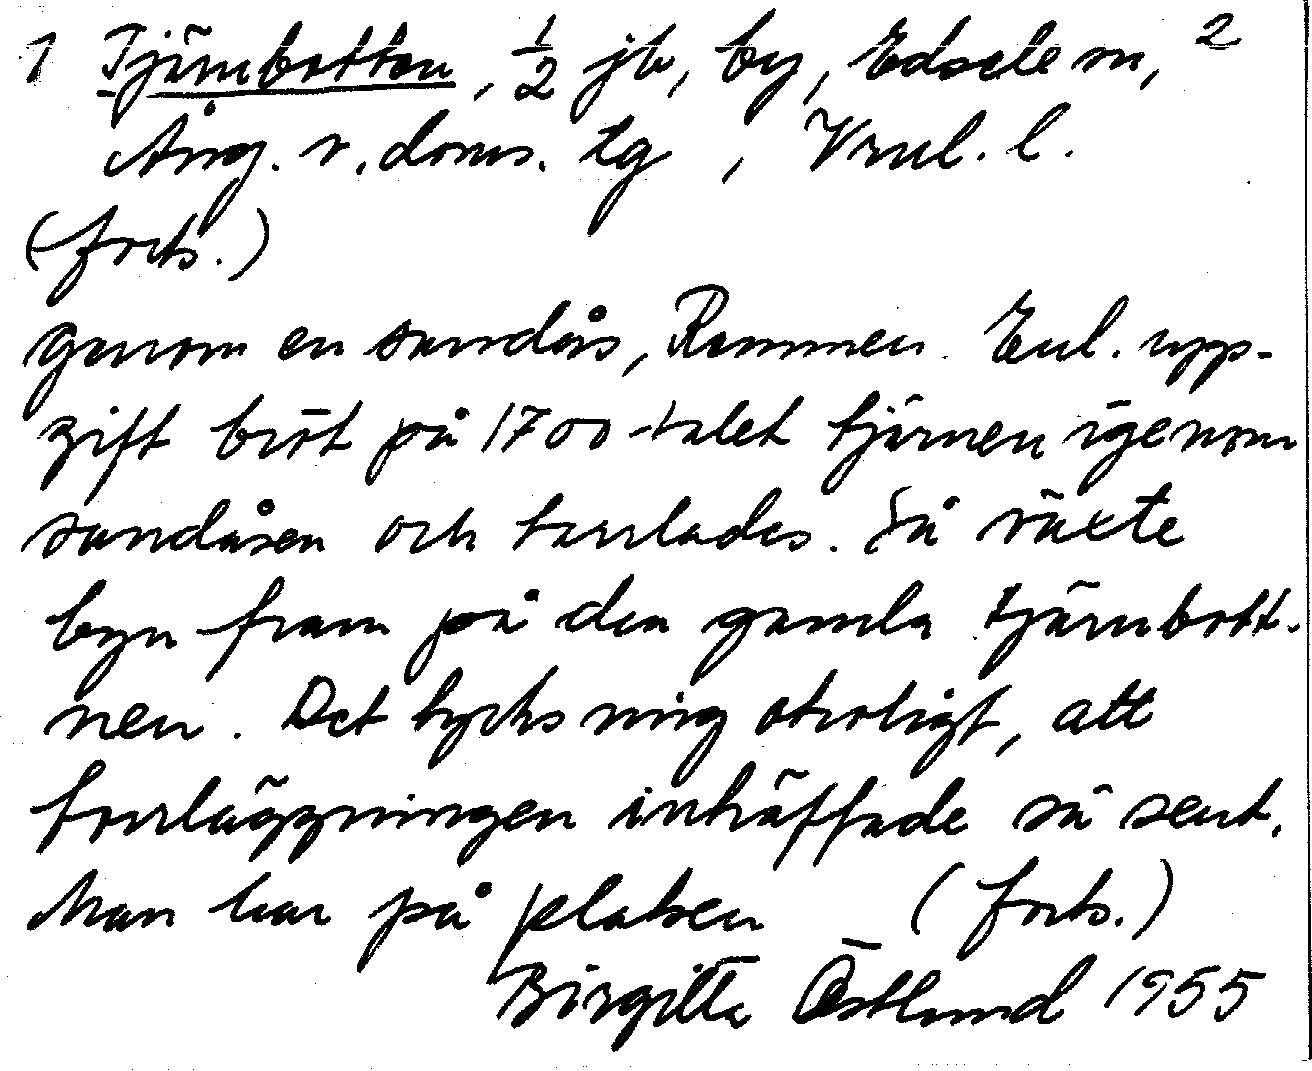 1 Tjärnbotten, 1/2 jb, by, Edsele sn, 2
Ång. v. doms. tg, Vrnl. l.
(forts.)
genom en sandås, Rammen. Enl. upp-
gift bröt på 1700-talet tjärnen igenom
sandåsen och torrlades. Så växte
byn fram på den gamla tjärnbott-
nen. Det tycks mig otroligt, att
torrläggningen inträffade så sent.
Man har på platsen (forts.)
Birgitta Östlund 1955